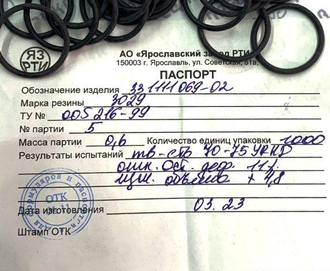 ЯЗ
РТИ
АО «Ярославский завод РТИ
150003 г. Ярославль, ул. Советская, 81а,
ПАСПОРТ
Обозначение изделия 33 1111069-02
Марка резины 3029
ТУ № 005216-99
№ партии 5
Масса партии 0,6 Количество единиц упаковки 1000
Результаты испытаний тв-сть 70-75 УКНД
отн. ост. деф. 11%
изм. объема + 4,8
Дата изготовления 03.23
ОТК
Штамп ОТК